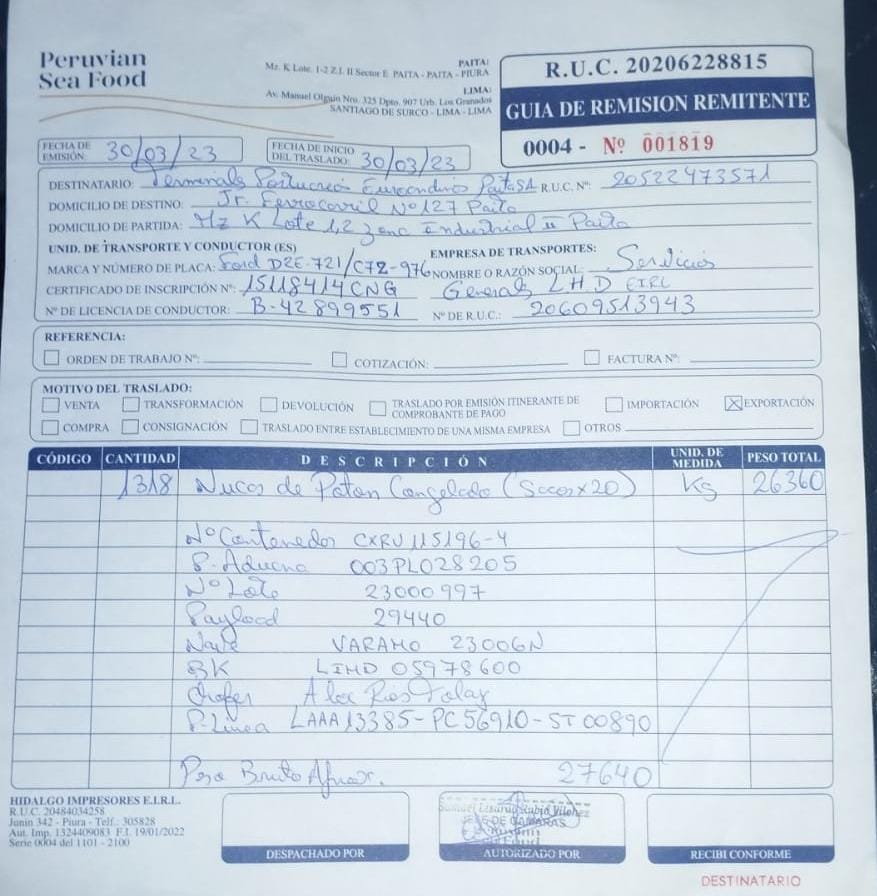 Peruvian
Sea Food
PAITA:
Mz. K Lote. 1-2 Z.I. II Sector E PAITA - PAITA - PIURA
LIMA:
Av. Manuel Olguin Nro. 325 Dpto. 907 Urb. Los Granados
SANTIAGO DE SURCO - LIMA - LIMA
R.U.C. 20206228815
GUIA DE REMISION REMITENTE
0004 - Nº 001819
FECHA DE EMISIÓN: 30/03/23
FECHA DE INICIO DEL TRASLADO: 30/03/23
DESTINATARIO: Terminales Portuarios Euroandinos Paita SA R.U.C. Nº: 20522473571
DOMICILIO DE DESTINO: Jr. Ferrocarril Nº 127 Paita
DOMICILIO DE PARTIDA: Mz K Lote 1,2 zona Industrial II Paita
UNID. DE TRANSPORTE Y CONDUCTOR (ES) EMPRESA DE TRANSPORTES:
MARCA Y NÚMERO DE PLACA: Ford D2E-721/C7Z-976 NOMBRE O RAZÓN SOCIAL: Servicios
CERTIFICADO DE INSCRIPCIÓN Nº: 15118414CNG Generales L.H.D EIRL
Nº DE LICENCIA DE CONDUCTOR: B-42899551 Nº DE R.U.C.: 20609513943
REFERENCIA:
ORDEN DE TRABAJO Nº: COTIZACIÓN: FACTURA Nº:
MOTIVO DEL TRASLADO:
VENTA TRANSFORMACIÓN DEVOLUCIÓN TRASLADO POR EMISIÓN ITINERANTE DE COMPROBANTE DE PAGO IMPORTACIÓN X EXPORTACIÓN
COMPRA CONSIGNACIÓN TRASLADO ENTRE ESTABLECIMIENTO DE UNA MISMA EMPRESA OTROS
CÓDIGO CANTIDAD DESCRIPCIÓN UNID. DE MEDIDA PESO TOTAL
1318 Nucas de Poton Congelado (Sacos x 20) Kg 26360
Nº Contenedor CXRU 115196-4
P. Aduana 003PL028205
Nº Lote 23000997
Payload 29440
Nave VARAMO 23006N
BK LIMD 05978600
Chofer Alex Rios
P. Linea LAAA13385-PC56910-ST00890
Peso Bruto 27640
HIDALGO IMPRESORES E.I.R.L.
R.U.C. 20484034258
Junin 342 - Piura - Telf.: 305828
Aut. Imp. 1324409083 F.I. 19/01/2022
Serie 0004 del 1101 - 2100
JEFE DE CAMARAS
DESPACHADO POR AUTORIZADO POR RECIBI CONFORME
DESTINATARIO